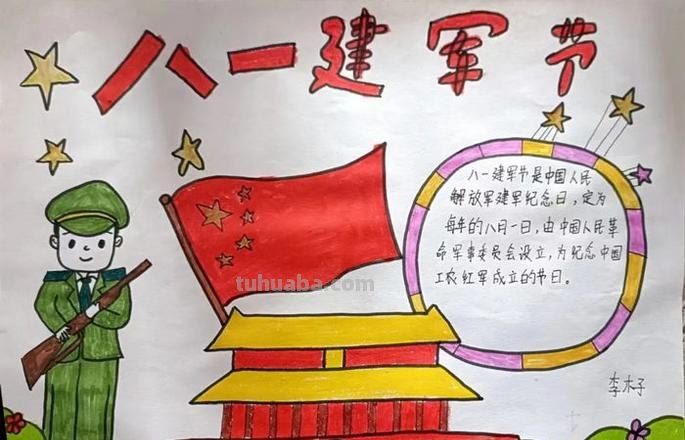 八一建军节
八一建军节是中国人民
解放军建军纪念日，定为
每年的八月一日，由中国人民革
命军事委员会设立，为纪念中国
工农红军成立的节日。
tuhuaba.com
李木子